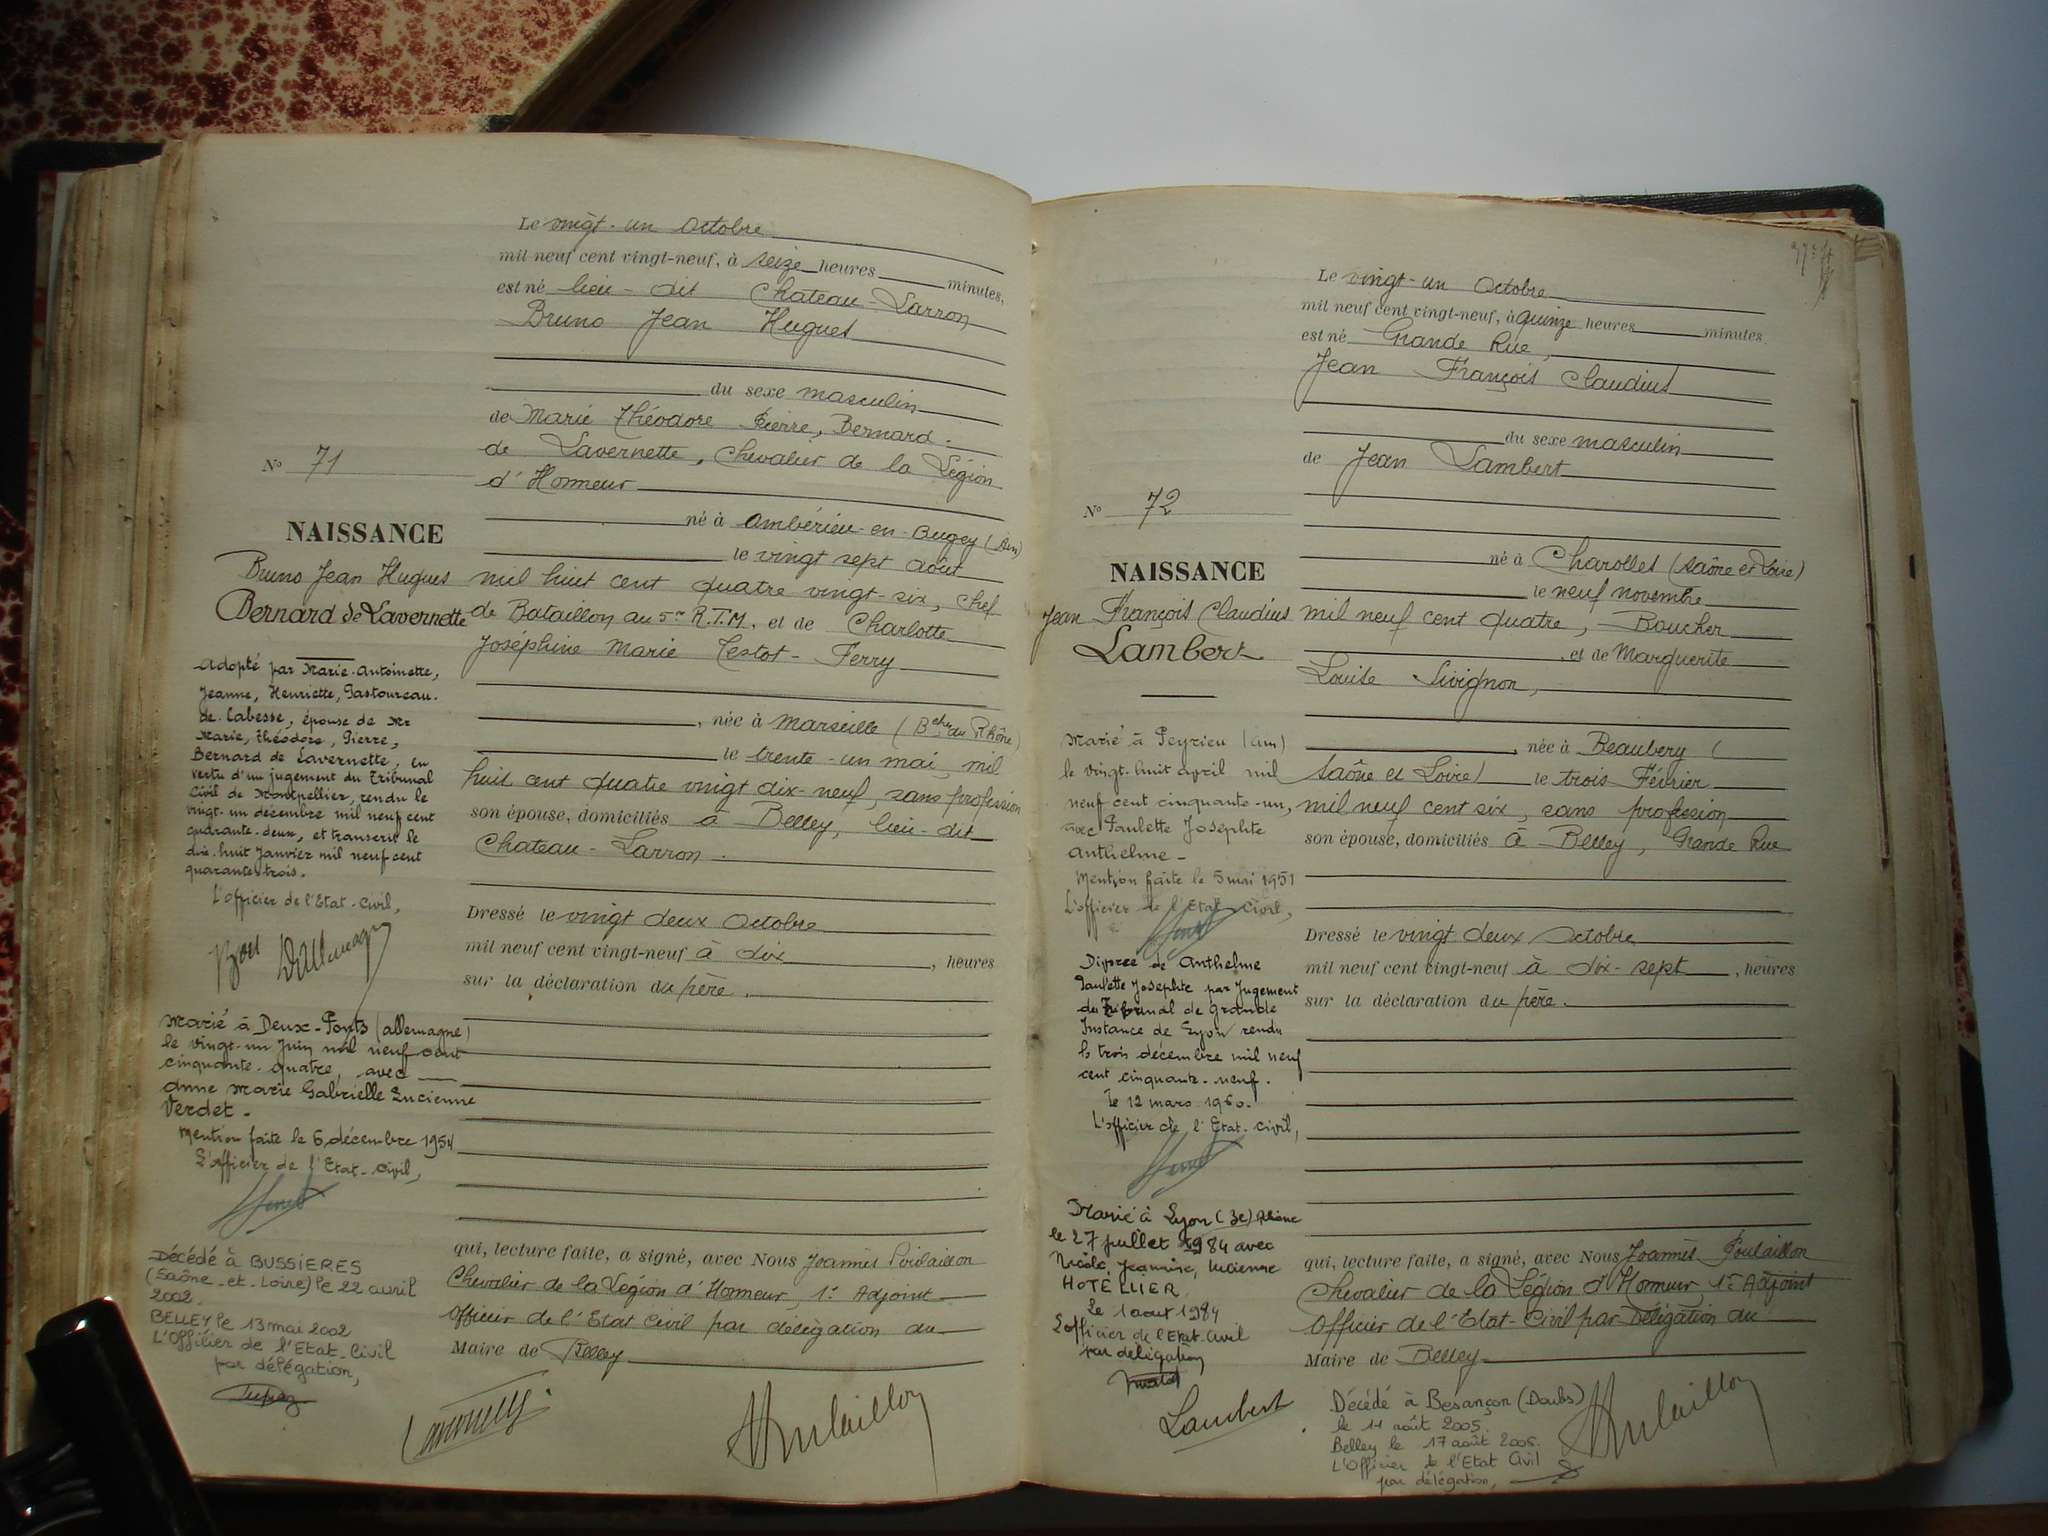 Le vingt-un Octobre
mil neuf cent vingt-neuf, à seize heures minutes,
est né lieu-dit Chateau-Larron
Bruno Jean Hugues
du sexe masculin
de Marie Théodore Pierre, Bernard.
de Lavernette, Chevalier de la Légion
d'Honneur
né à Ambérieu-en-Bugey (Ain)
le vingt sept août
mil huit cent quatre vingt-six, chef
de Bataillon au 5e R.T.M. et de Charlotte
Joséphine Marie Testot-Ferry
, née à Marseille (Bches du Rhône)
le trente-un mai, mil
huit cent quatre vingt dix-neuf, sans profession
son épouse, domiciliés à Belley, lieu-dit
Chateau-Larron.
Dressé le vingt deux Octobre
mil neuf cent vingt-neuf à dix , heures
sur la déclaration du père.
qui, lecture faite, a signé, avec Nous Joannès Poulaillon
Chevalier de la Légion d'Honneur, 1er Adjoint
Officier de l'Etat Civil par délégation du
Maire de Belley
Poulaillon
No 71
NAISSANCE
Bruno Jean Hugues
Bernard de Lavernette
Adopté par Marie-Antoinette,
Jeanne, Henriette, Pastoureau.
de Labesse, épouse de Mr
Marie, Théodore, Pierre,
Bernard de Lavernette, en
vertu d'un jugement du Tribunal
Civil de Montpellier, rendu le
vingt-un décembre mil neuf cent
quarante-deux, et transcrit le
dix-huit Janvier mil neuf cent
quarante-trois.
L'officier de l'Etat-Civil,
Marié à Deux-Ponts (Allemagne)
le vingt-un Juin mil neuf cent
cinquante-quatre, avec
Anne Marie Gabrielle Lucienne
Verdet.
Mention faite le 6 décembre 1954
L'officier de l'Etat-Civil,
Décédé à BUSSIERES
(Saône-et-Loire) le 22 avril
2002.
BELLEY le 13 mai 2002
L'Officier de l'Etat-Civil
par délégation,
Le vingt-un Octobre
mil neuf cent vingt-neuf, à quinze heures minutes.
est né Grande Rue,
Jean François Claudius
du sexe masculin
de Jean Lambert
né à Charolles (Saône et Loire)
le neuf novembre
mil neuf cent quatre, Boucher
, et de Marguerite
Louise Sivignon,
, née à Beaubery (
Saône et Loire) le trois Février
mil neuf cent six, sans profession
son épouse, domiciliés à Belley, Grande Rue
Dressé le vingt deux Octobre
mil neuf cent vingt-neuf à dix-sept , heures
sur la déclaration du père.
qui, lecture faite, a signé, avec Nous Joannès Poulaillon
Chevalier de la Légion d'Honneur, 1er Adjoint
Officier de l'Etat-Civil par Délégation du
Maire de Belley
Lambert
Poulaillon
No 72
NAISSANCE
Jean François Claudius
Lambert
Marié à Peyrieu (Ain)
le vingt-huit avril mil
neuf cent cinquante-un,
avec Paulette Josephte
Anthelme-
Mention faite le 5 mai 1951
L'officier de l'Etat-Civil,
Divorcé de Anthelme
Paulette Josephte par Jugement
du Tribunal de Grande
Instance de Lyon rendu
le trois décembre mil neuf
cent cinquante-neuf.
Le 12 mars 1960.
L'officier de l'Etat-civil,
Marié à Lyon (3e) Rhône
le 27 juillet 1984 avec
Nicole, Jeannine, Lucienne
HOTELLIER
Le 1 aout 1984
L'officier de l'Etat-Civil
par delegation
Décédé à Besançon (Doubs)
le 11 août 2005.
Belley le 17 août 2005.
L'Officier de l'Etat Civil
par délégation,